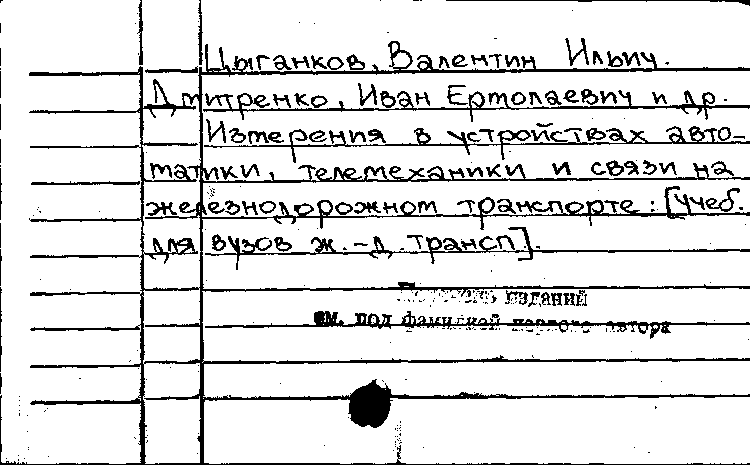 Цыганков, Валентин Ильич.
Дмитренко, Иван Ермолаевич и др.
Измерения в устройствах авто-
матики, телемеханики и связи на
железнодорожном транспорте: [учеб.
для вузов ж.-д. трансп].
Перечень изданий
см. под фамилией первого автора